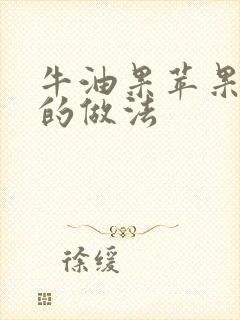 牛油果苹果
的做法
徐缓